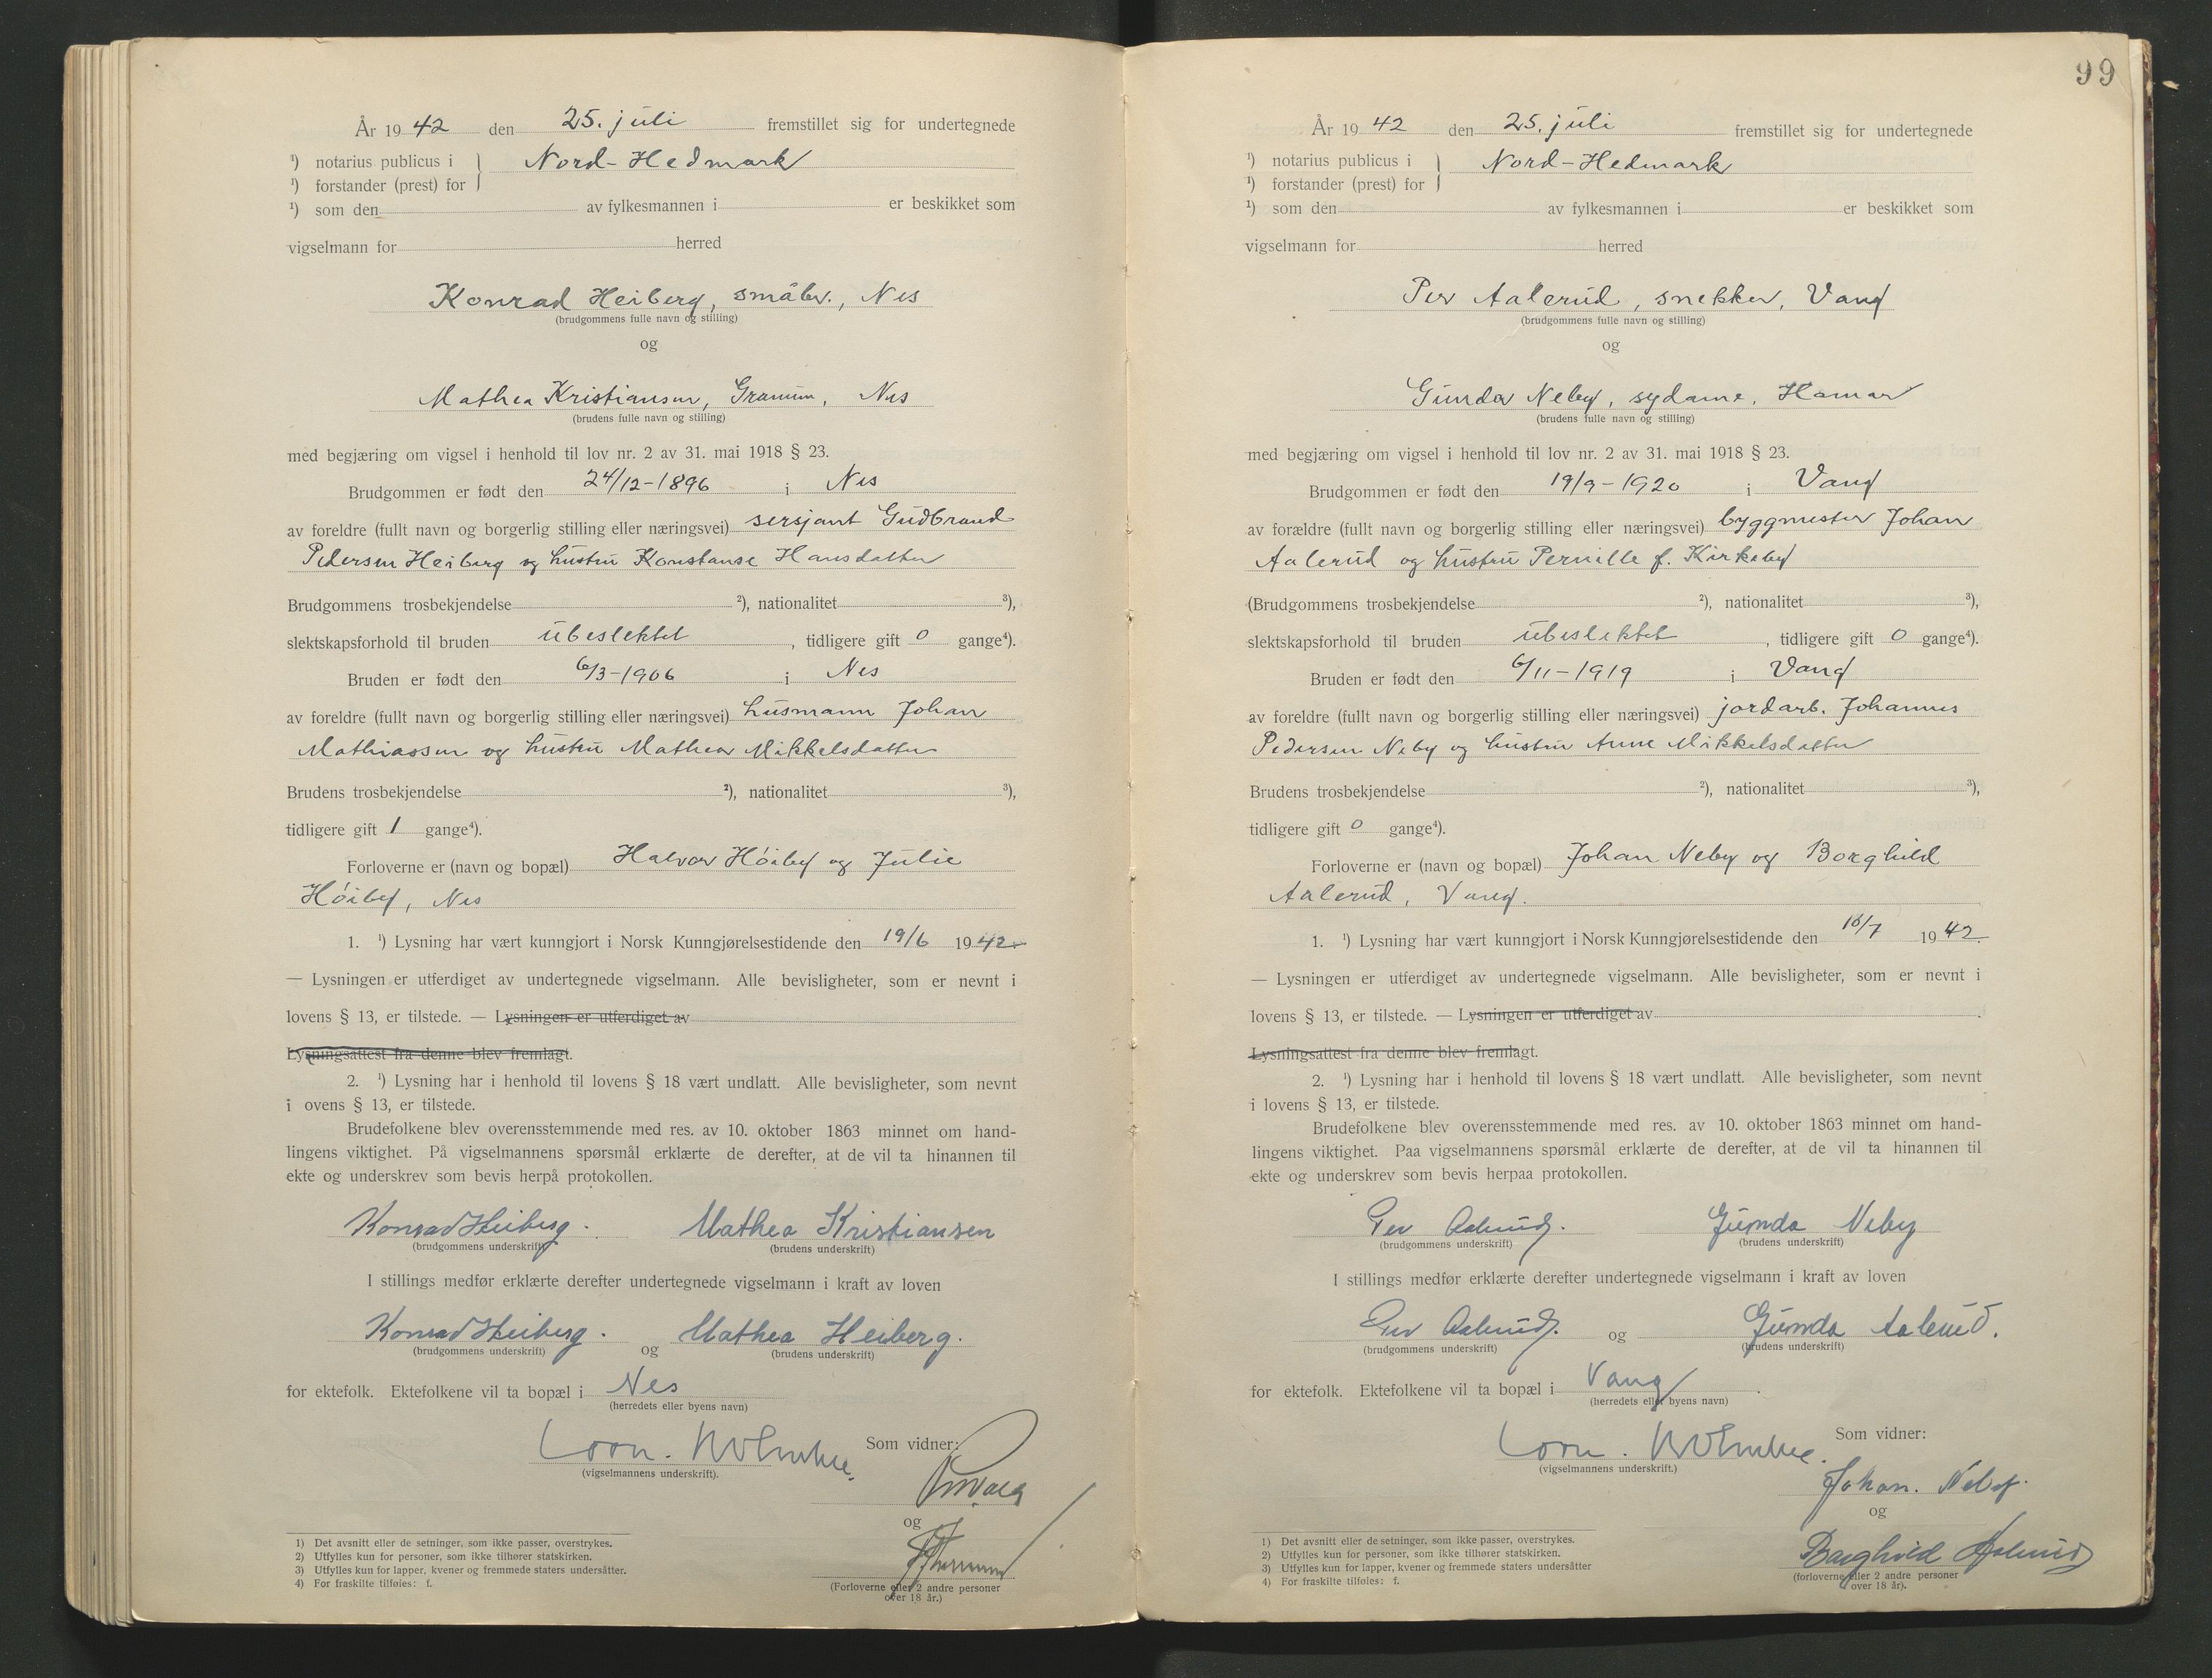 År 1942 den 25. juli fremstillet sig for undertegnede
¹) notarius publicus i } Nord-Hedmark
¹) forstander (prest) for
¹) som den av fylkesmannen i er beskikket som
vigselmann for herred
Konrad Heiberg, småbr., Nes
(brudgommens fulle navn og stilling)
og
Mathea Kristiansen, Granum, Nes
(brudens fulle navn og stilling)
med begjæring om vigsel i henhold til lov nr. 2 av 31. mai 1918 § 23.
Brudgommen er født den 24/12-1896 i Nes
av foreldre (fullt navn og borgerlig stilling eller næringsvei) sersjant Gudbrand
Pedersen Heiberg og hustru Konstanse Hansdatter
Brudgommens trosbekjendelse ²), nationalitet ³),
slektskapsforhold til bruden ubeslektet, tidligere gift 0 gange⁴).
Bruden er født den 6/3-1906 i Nes
av foreldre (fullt navn og borgerlig stilling eller næringsvei) husmann Johan
Mathiassen og hustru Mathea Mikkelsdatter
Brudens trosbekjendelse ²), nationalitet ³),
tidligere gift 1 gange⁴).
Forloverne er (navn og bopæl) Halvor Høiby og Julie
Høiby, Nes
1. ¹) Lysning har vært kunngjort i Norsk Kunngjørelsestidende den 19/6 1942.
— Lysningen er utferdiget av undertegnede vigselmann. Alle bevisligheter, som er nevnt i
lovens § 13, er tilstede. — Lysningen er utferdiget av
Lysningsattest fra denne blev fremlagt.
2. ¹) Lysning har i henhold til lovens § 18 vært undlatt. Alle bevisligheter, som nevnt
i ovens § 13, er tilstede.
Brudefolkene blev overensstemmende med res. av 10. oktober 1863 minnet om hand-
lingens viktighet. På vigselmannens spørsmål erklærte de derefter, at de vil ta hinannen til
ekte og underskrev som bevis herpå protokollen.
Konrad Heiberg. Mathea Kristiansen
(brudgommens underskrift) (brudens underskrift)
I stillings medfør erklærte derefter undertegnede vigselmann i kraft av loven
Konrad Heiberg. og Mathea Heiberg.
(brudgommens underskrift) (brudens underskrift)
for ektefolk. Ektefolkene vil ta bopæl i Nes
(herredets eller byens navn)
Som vidner:
(vigselmannens underskrift).
og
1) Det avsnitt eller de setninger, som ikke passer, overstrykes.
2) Utfylles kun for personer, som ikke tilhører statskirken.
3) Utfylles kun for lapper, kvener og fremmede staters undersåtter.
4) For fraskilte tilføies: f.
(Forloverne eller 2 andre personer
over 18 år.)
99
År 1942 den 25. juli fremstillet sig for undertegnede
¹) notarius publicus i } Nord-Hedmark
¹) forstander (prest) for
¹) som den av fylkesmannen i er beskikket som
vigselmann for herred
Per Aalerud, snekker, Vang
(brudgommens fulle navn og stilling)
og
Gunda Neby, sydame, Hamar
(brudens fulle navn og stilling)
med begjæring om vigsel i henhold til lov nr. 2 av 31. mai 1918 § 23.
Brudgommen er født den 19/9-1920 i Vang
av forældre (fullt navn og borgerlig stilling eller næringsvei) byggmester Johan
Aalerud og hustru Pernille f. Kirkeby
(Brudgommens trosbekjendelse ²), nationalitet ³),
slektskapsforhold til bruden ubeslektet, tidligere gift 0 gange⁴).
Bruden er født den 6/11-1919 i Vang
av foreldre (fullt navn og borgerlig stilling eller næringsvei) jordarb. Johannes
Pedersen Neby og hustru Anne Mikkelsdatter
Brudens trosbekjendelse ²), nationalitet ³),
tidligere gift 0 gange⁴).
Forloverne er (navn og bopæl) Johan Neby og Borghild
Aalerud, Vang.
1. ¹) Lysning har vært kunngjort i Norsk Kunngjørelsestidende den 16/7 1942.
— Lysningen er utferdiget av undertegnede vigselmann. Alle bevisligheter, som er nevnt i
lovens § 13, er tilstede. — Lysningen er utferdiget av
Lysningsattest fra denne blev fremlagt.
2. ¹) Lysning har i henhold til lovens § 18 vært undlatt. Alle bevisligheter, som nevnt
i lovens § 13, er tilstede.
Brudefolkene blev overensstemmende med res. av 10. oktober 1863 minnet om hand-
lingens viktighet. Paa vigselmannens spørsmål erklærte de derefter, at de vil ta hinannen til
ekte og underskrev som bevis herpaa protokollen.
Per Aalerud. Gunda Neby
(brudgommens underskrift) (brudens underskrift)
I stillings medfør erklærte derefter undertegnede vigselmann i kraft av loven
Per Aalerud. og Gunda Aalerud.
(brudgommens underskrift) (brudens underskrift)
for ektefolk. Ektefolkene vil ta bopæl i Vang.
(herredets eller byens navn)
Som vidner:
(vigselmannens underskrift.)
Johan. Neby.
og
Borghild Aalerud
1) Det avsnitt eller de setninger, som ikke passer, overstrykes.
2) Utfylles kun for personer, som ikke tilhører statskirken.
3) Utfylles kun for lapper, kvener og fremmede staters undersåtter
4) For fraskilte tilføies: f.
(forloverne eller 2 andre personer
over 18 år).